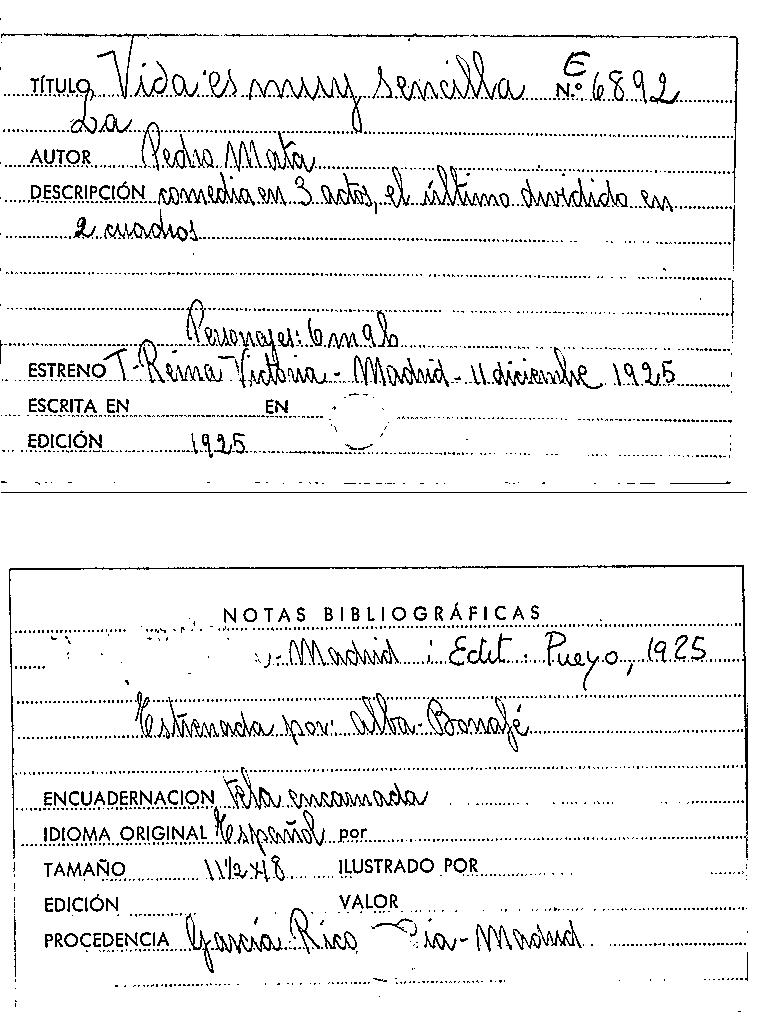 TÍTULO Vida es muy sencilla E N.º 6892
La
AUTOR Pedro Mata
DESCRIPCIÓN comedia en 3 actos, el último dividido en
2 cuadros
Personajes: 6 m 9 h
ESTRENO T-Reina Victoria - Madrid - 11 diciembre 1925
ESCRITA EN EN
EDICIÓN 1925
NOTAS BIBLIOGRÁFICAS
- Madrid : Edit. Pueyo, 1925
Estrenada por: Alba-Bonafé
ENCUADERNACION Tela encarnada
IDIOMA ORIGINAL Español por
TAMAÑO 11½ x 18 ILUSTRADO POR
EDICIÓN VALOR
PROCEDENCIA García Rico - Madrid